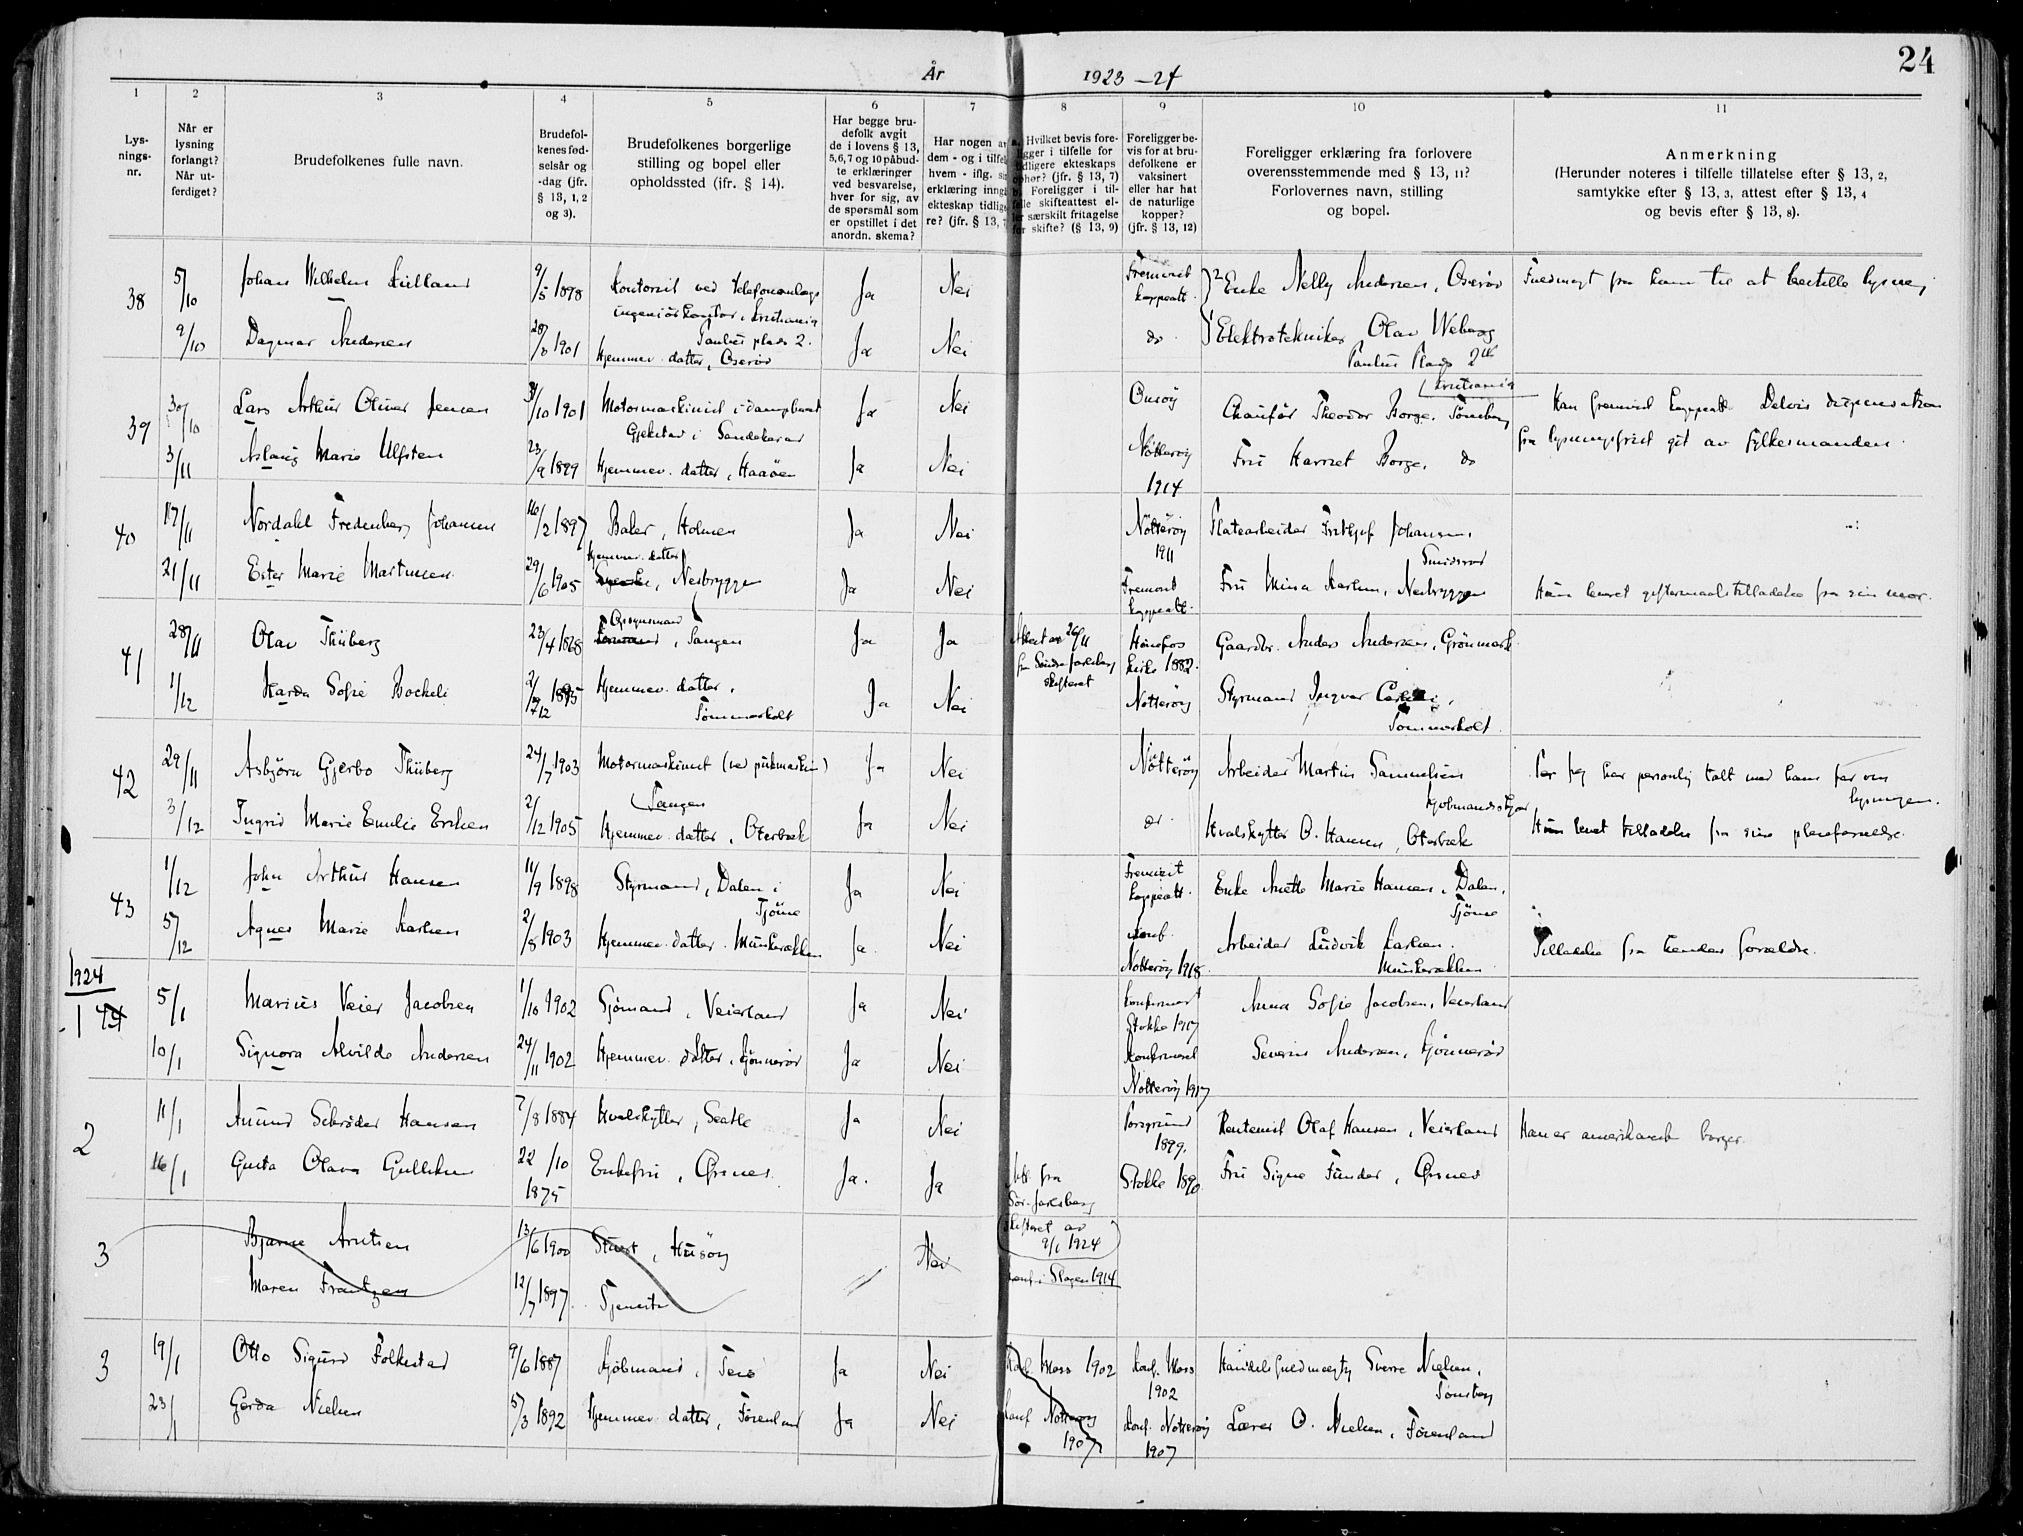 24
År 1923-24
1 2 3 4 5 6 7 8 9 10 11
Lys-
nings-
nr.
Når er
lysning
forlangt?
Når ut-
ferdiget?
Brudefolkenes fulle navn.
Brudefol-
kenes fød-
selsår og
-dag (jfr.
§ 13, 1, 2
og 3).
Brudefolkenes borgerlige
stilling og bopel eller
opholdssted (jfr. § 14).
Har begge bru-
defolk avgit
de i lovens § 13,
5,6,7 og 10 påbud-
te erklæringer
ved besvarelse,
hver for sig, av
de spørsmål som
er opstillet i det
anordn. skema?
Har nogen av
dem - og i tilfel
hvem - iflg. si
erklæring inngå
ekteskap tidlig
re? (jfr. § 13, 7
a. Hvilket bevis fore-
ligger i tilfelle for
tidligere ekteskaps
ophør? (jfr. § 13, 7)
b. Foreligger i til-
felle skifteattest el-
ler særskilt fritagelse
for skifte? (§ 13, 9)
Foreligger be-
vis for at bru-
defolkene er
vaksinert
eller har hat
de naturlige
kopper?
(jfr. § 13, 12)
Foreligger erklæring fra forlovere
overensstemmende med § 13, 11?
Forlovernes navn, stilling
og bopel.
Anmerkning
(Herunder noteres i tilfelle tillatelse efter § 13, 2,
samtykke efter § 13, 3, attest efter § 13, 4
og bevis efter § 13, 8).
38 5/10 Johan Wilhelm Kielland 9/5 1898 Kontorist ved Telefonanlægs Ja Nei Fremvist 2 Enke Nelly Andersen, Oserød Fuldmagt fra ham til at bestille lysning
ingeniørkontor, Kristiania koppeatt.
9/10 Dagmar Andersen 28/8 1901 Paulus plads 2. Ja Nei do 1 Elektrotekniker Olav Weberg
Hjemmev. datter, Oserød Paulus Plads 2
Kristiania
39 30/10 Lars Arthur Oliver Jensen 31/10 1901 Motormaskinist i dampbaat Ja Nei Onsöy Chauför Theodor Borge. Tönsberg Han fremvist koppeatt. Delvis dispensation
Gjekstad i Sandeherad fra lysningsfrist git av fylkesmanden.
3/11 Aslaug Marie Ulfsten 23/9 1899 Hjemmev. datter, Haaöen Ja Nei Nötteröy Fru Harriet Borge. do
1914
40 17/11 Nordahl Fredenberg Johansen 16/2 1897 Baker, Holmen Ja Nei Nötteröy Platearbeider Frithjof Johansen,
1911 Smidsrød
Hjemmev. datter
21/11 Ester Marie Martinsen 29/6 1905 Nesbryggen Ja Nei Fremvist Fru Mina Karlsen, Nesbryggen Hun levert giftermaalstilladelse fra sin mor.
koppeatt.
41 28/11 Olav Thüberg 23/4 1868 Opsynsmand Ja Ja Attest av 26/11 Hönefos Gaardbr. Anders Andersen, Grönmark
, Tangen fra Söndre Jarlsberg kirke 1882.
skifteret
1/12 Karda Sofie Bockeli 2/12 1895 Hjemmev. datter, Ja Nei Nötteröy Styrmand Ingvar
Sömmerholt Sommerholt
42 29/11 Asbjörn Gjerbo Thüberg 24/7 1903 Motormaskinist Ja Nei Nötteröy Arbeider Martin Samuelsen Jeg har personlig talt med hans far om
Tangen Kjöbmandsskjær lysningen.
3/12 Ingrid Marie Emilie Eriksen 2/12 1905 Hjemmev. datter, Oterbæk Ja Nei do. Hvalskytter O. Hansen, Oterbæk Hun levert tilladelse fra sine pleieforældre.
43 1/12 John Arthur Hansen 11/9 1898 Styrmand, Dalen i Ja Nei Fremvist Enke Anette Marie Hansen, Dalen,
Tjöme koppeatt. Tjöme
5/12 Agnes Marie Karlsen 2/8 1903 Hjemmev. datter. Munkerækken Ja. Nei Konf. Arbeider Ludvik Karlsen. Tilladelse fra hendes forældre.
Nötteröy 1918. Munkerækken
1924
1 5/1 Marius Veier Jacobsen 1/10 1902 Sjömand, Veierland Ja Nei Konfirmert Anna Sofie Jacobsen, Veierland
Stokke 1917
10/1 Signora Alvilde Andersen 24/11 1902 Hjemmev. datter, Kjönneröd Ja Nei Konfirmert Severin Andersen, Kjönneröd
Nötteröy 1917
2 11/1 Amund Schröder Hansen 7/8 1884 Hvalskytter, Seatle Ja Nei Porsgrund Rentenist Olaf Hansen, Veierland Han er amerikansk borger.
1899.
16/1 Gusta Olava Gulliksen 22/10 Enkefru, Örsnes. Ja. Ja Att. fra Stokke 1890 Fru Signe Funder, Örsnes
1875 Sör-Jarlsberg
skifteret av
9/1 1924
3 Bjarne Arntsen 13/6 1900 Stuert, Husöy Nei
Konf. i Slagen 1914
Maren Frantzen 12/7 1897. Tjeneste
3 19/1 Otto Sigurd Folkestad 9/6 1887 Kjöbmand, Teie Ja Nei Konf. Moss 1902 Konf. Moss Handelsfuldmægtig Sverre Nielsen,
1902 Tönsberg
23/1 Gerda Nielsen 5/3 1892 Hjemmev. datter, Förenland Ja Nei Konf Nötteröy Konf. Nötteröy Lærer O. Nielsen, Förenland
1907 1907